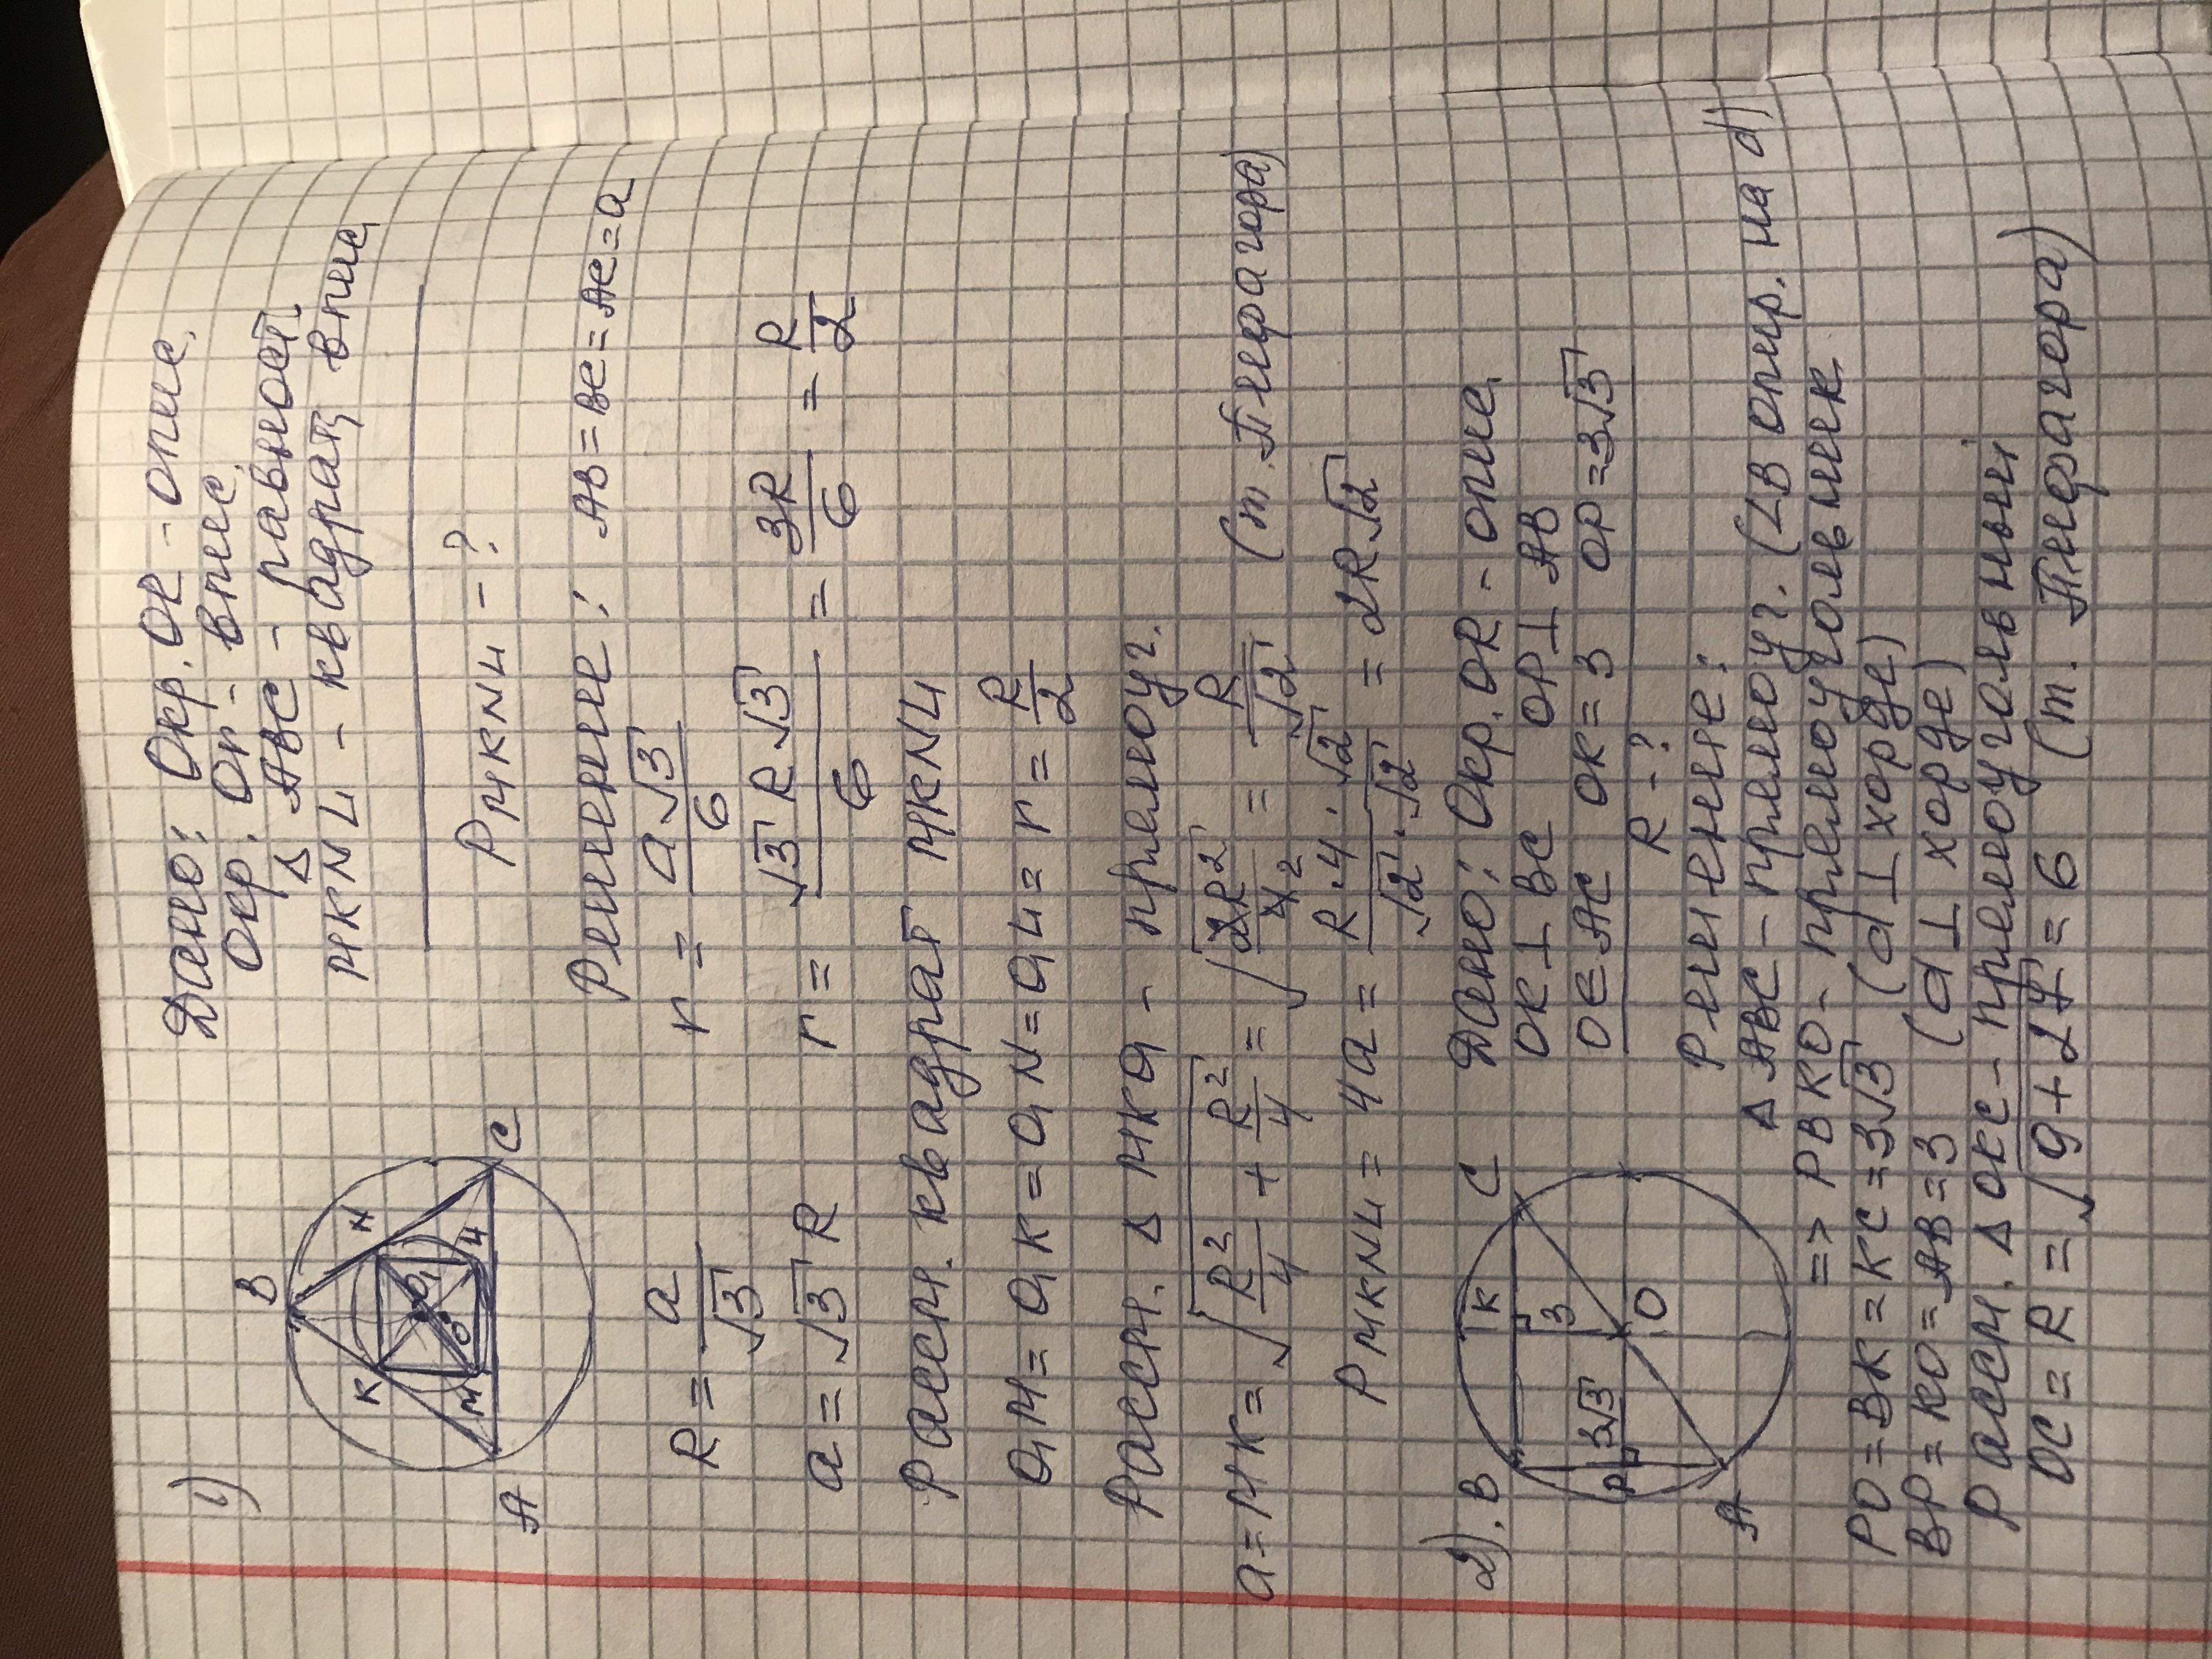 1)
Дано: Окр. OR - опис.
Окр. Or - впис.
Δ ABC - равност.
MKNL - квадрат впис.
P MKNL - ?
B
K
N
O
O₁
M
L
A
C
Решение: AB = BC = AC = a
R = a/√3
r = a√3/6
a = √3 R
r = √3 R√3/6 = 3R/6 = R/2
Рассм. квадрат MKNL
O₁M = O₁K = O₁N = O₁L = r = R/2
Рассм. Δ MKO₁ - прямоуг.
a = MK = √(R²/4 + R²/4) = √(2R²/4 2) = R/√2 (т. Пифагора)
P MKNL = 4a = R·4·√2/√2·√2 = 2R√2
2).
B
K
C
3
P
3√3
O
A
Дано: Окр. OR - опис.
OK ⊥ BC OP ⊥ AB
O ∈ AC OK = 3 OP = 3√3
R - ?
Решение:
Δ ABC - прямоуг. (∠B опир. на d)
=> PBKO - прямоугольник
PO = BK = KC = 3√3 (d ⊥ хорде)
BP = KO = AB = 3 (d ⊥ хорде)
Рассм. Δ OKC - прямоугольный
OC = R = √9+27 = 6 (т. Пифагора)